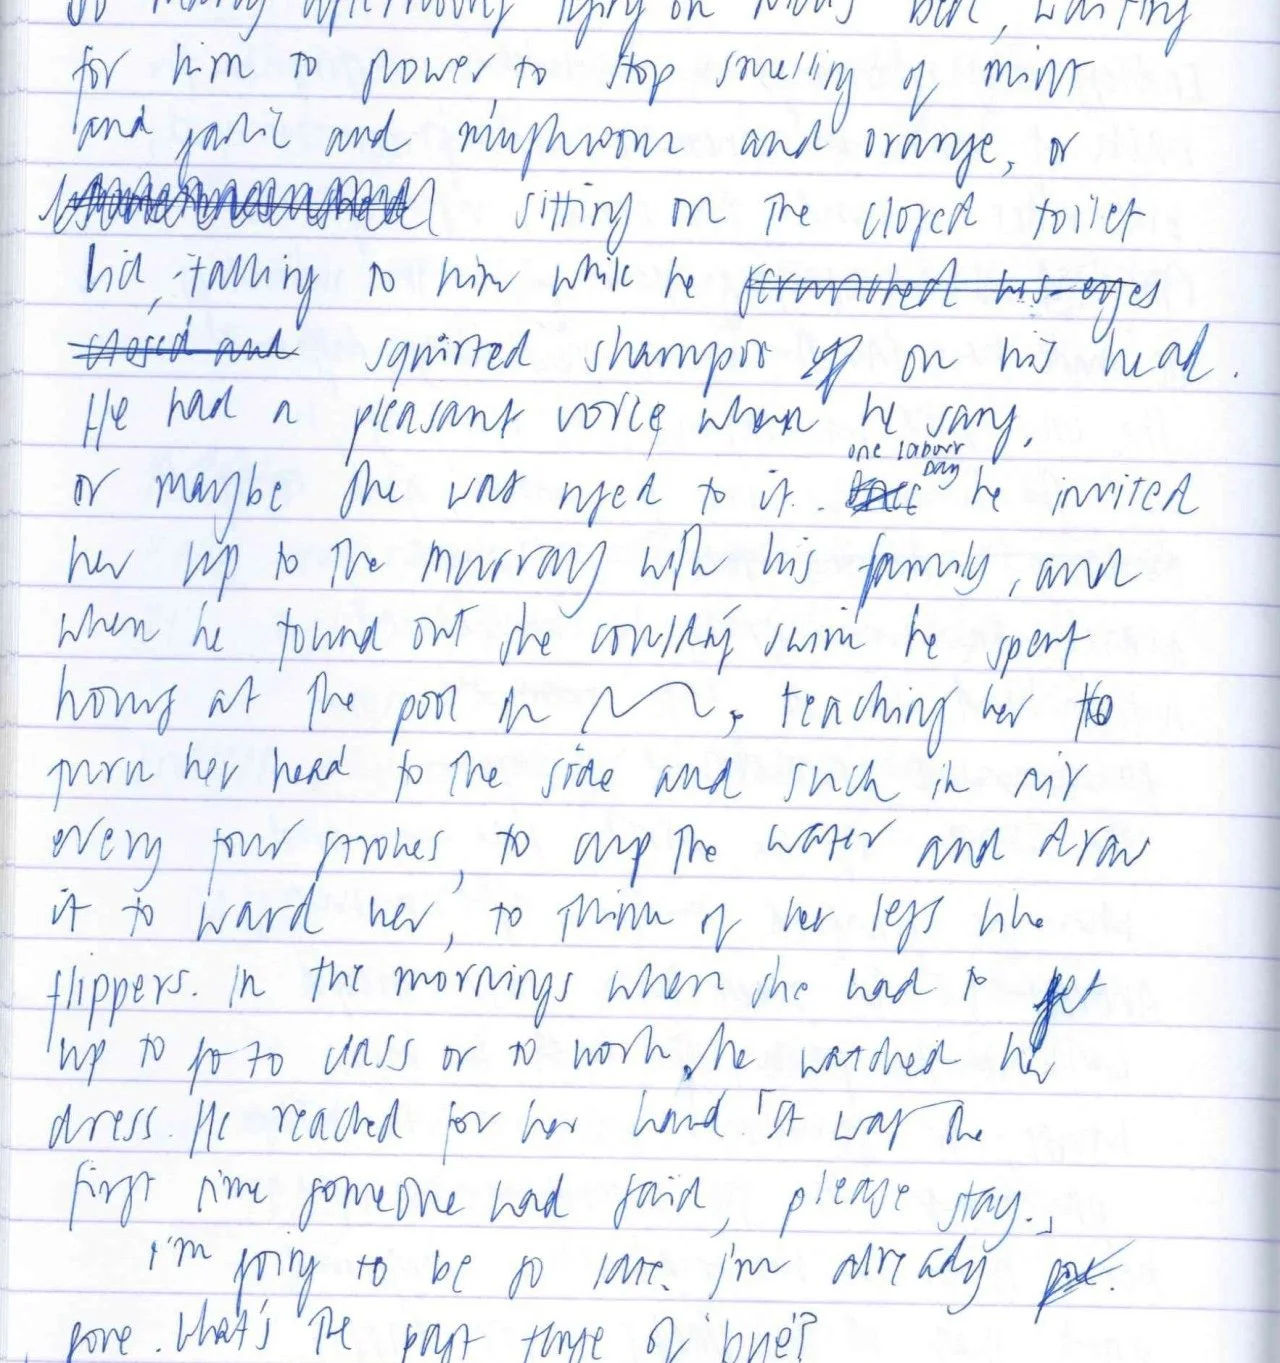 So many afternoons lying on Nick's bed, waiting
for him to power, to stop smelling of mint
and garlic and mushroom and orange, or
sitting on the closed toilet
lid, talking to him while he scrunched his eyes
closed and squirted shampoo on his head.
He had a pleasant voice when he sang,
one labour
Day
or maybe she was used to it. he invited
her up to the Murray with his family, and
when he found out she couldn't swim he spent
hours at the pool in , teaching her to
turn her head to the side and suck in air
every four strokes, to cup the water and draw
it to ward her, to think of her legs like
flippers. In the mornings when she had to get
up to go to class or to work, he watched her
dress. He reached for her hand. It was the
first time someone had said, please stay.
I'm going to be so late. I'm already
gone. What's the past tense of 'bye'?